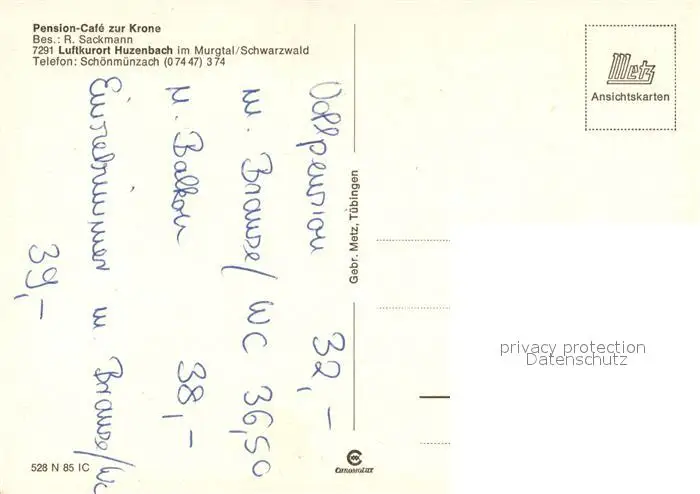 Pension-Café zur Krone
Bes.: R. Sackmann
7291 Luftkurort Huzenbach im Murgtal/Schwarzwald
Telefon: Schönmünzach (07447) 374
Vollpension 32,–
m. Brause/WC 36,50
m. Balkon 38,–
Einzelzimmer m. Brause/WC
39,–
Gebr. Metz, Tübingen
Metz
Ansichtskarten
privacy protection
Datenschutz
528 N 85 IC
CHROMOLUX